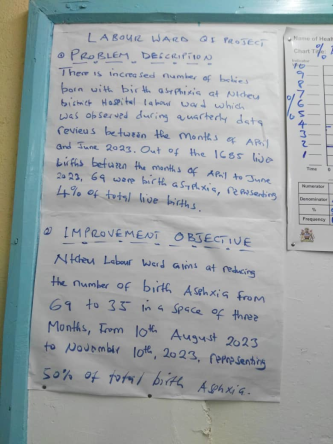 LABOUR WARD QI PROJECT
① PROBLEM DESCRIPTION
There is increased number of babies
born with birth asphyxia at Ntcheu
District Hospital labour ward which
was observed during quarterly data
reviews between the months of April
and June 2023. Out of the 1685 live
births between the months of April to June
2023, 69 were birth asphyxia, representing
4% of total live births.
② IMPROVEMENT OBJECTIVE
Ntcheu Labour Ward aims at reducing
the number of birth Asphxia from
69 to 35 in a space of three
Months, from 10th August 2023
to November 10th, 2023, representing
50% of total birth Asphxia.
Name of Heal
Chart Title:
%
10
9
8
7
6
5
4
3
2
1
Time
Numerator
Denominator
%
Frequency